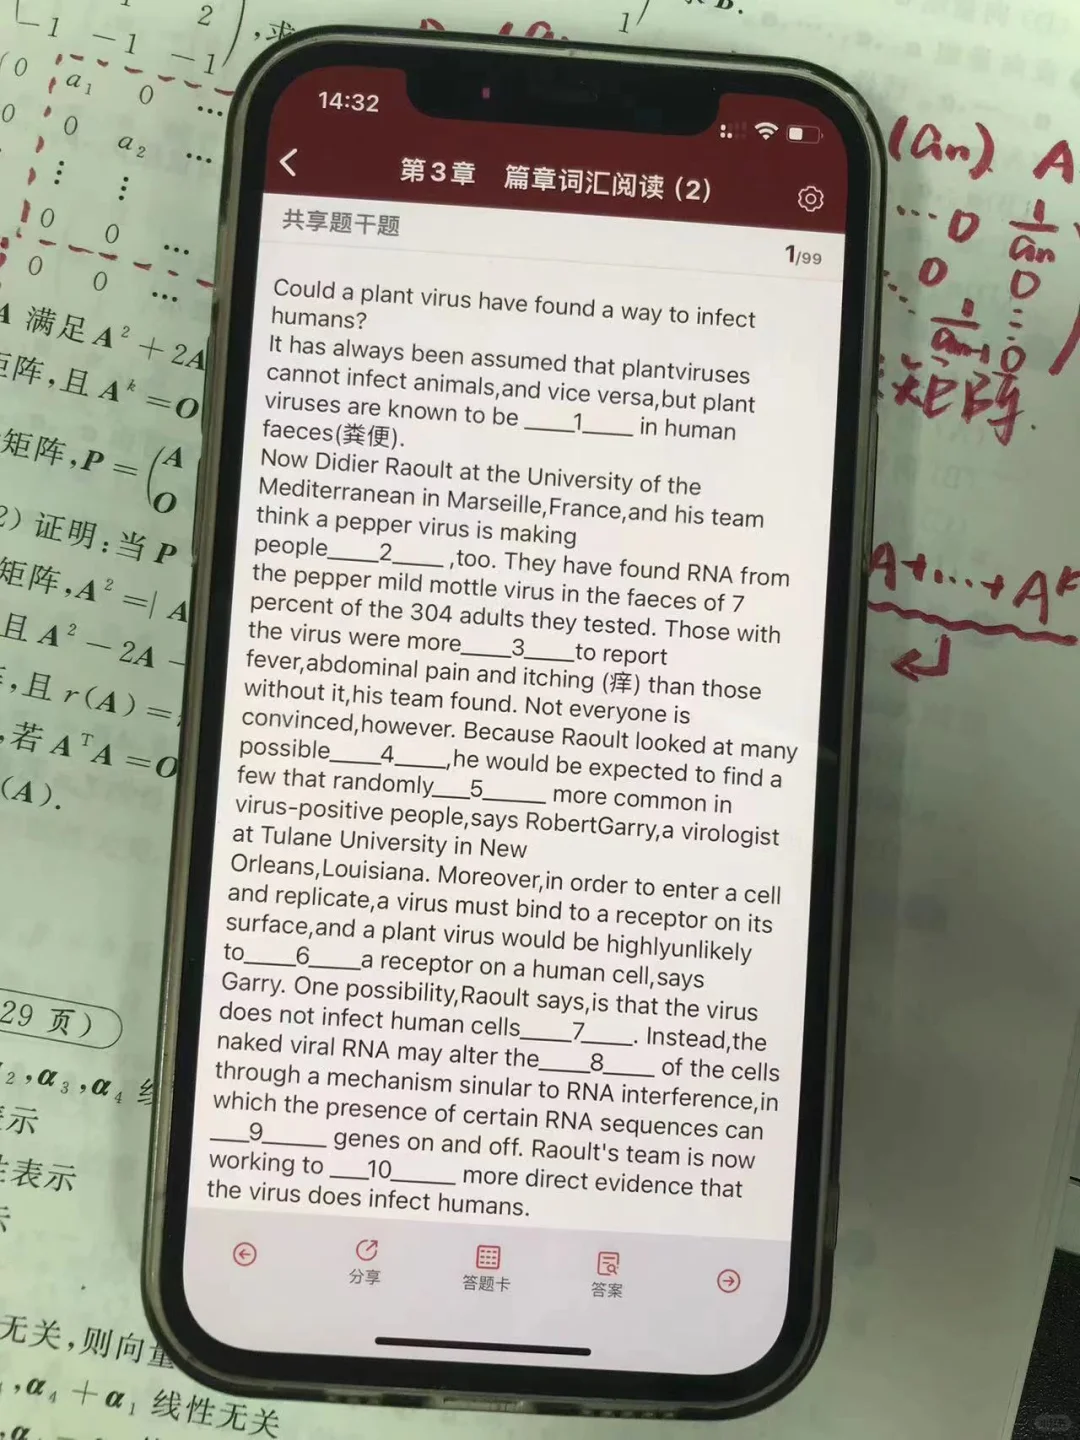 2
-1 -1 -1
,求
1
B.
0 a₁ 0 ...
0 0 a₂ ...
⋮ ⋮
0 0 ...
0 0 ...
A 满足 A² + 2A
矩阵,且 Aᵏ = O
矩阵, P = (A
O
2) 证明:当 P
矩阵, A² = | A
且 A² - 2A -
,且 r(A) =
,若 AᵀA = O
(A).
29 页)
₂, α₃, α₄ 线
表示
性表示
示
无关,则向量
, α₄ + α₁ 线性无关
(an) A
... 0 1/an
0 0
1/an-1 0
矩阵.
A+...+Aᵏ
14:32
第3章 篇章词汇阅读 (2)
共享题干题
1/99
Could a plant virus have found a way to infect
humans?
It has always been assumed that plantviruses
cannot infect animals,and vice versa,but plant
viruses are known to be ____1____ in human
faeces(粪便).
Now Didier Raoult at the University of the
Mediterranean in Marseille,France,and his team
think a pepper virus is making
people____2____ ,too. They have found RNA from
the pepper mild mottle virus in the faeces of 7
percent of the 304 adults they tested. Those with
the virus were more____3____to report
fever,abdominal pain and itching (痒) than those
without it,his team found. Not everyone is
convinced,however. Because Raoult looked at many
possible____4____,he would be expected to find a
few that randomly___5_____ more common in
virus-positive people,says RobertGarry,a virologist
at Tulane University in New
Orleans,Louisiana. Moreover,in order to enter a cell
and replicate,a virus must bind to a receptor on its
surface,and a plant virus would be highlyunlikely
to____6____a receptor on a human cell,says
Garry. One possibility,Raoult says,is that the virus
does not infect human cells____7____. Instead,the
naked viral RNA may alter the____8____ of the cells
through a mechanism sinular to RNA interference,in
which the presence of certain RNA sequences can
___9_____ genes on and off. Raoult's team is now
working to ___10_____ more direct evidence that
the virus does infect humans.
分享
答题卡
答案